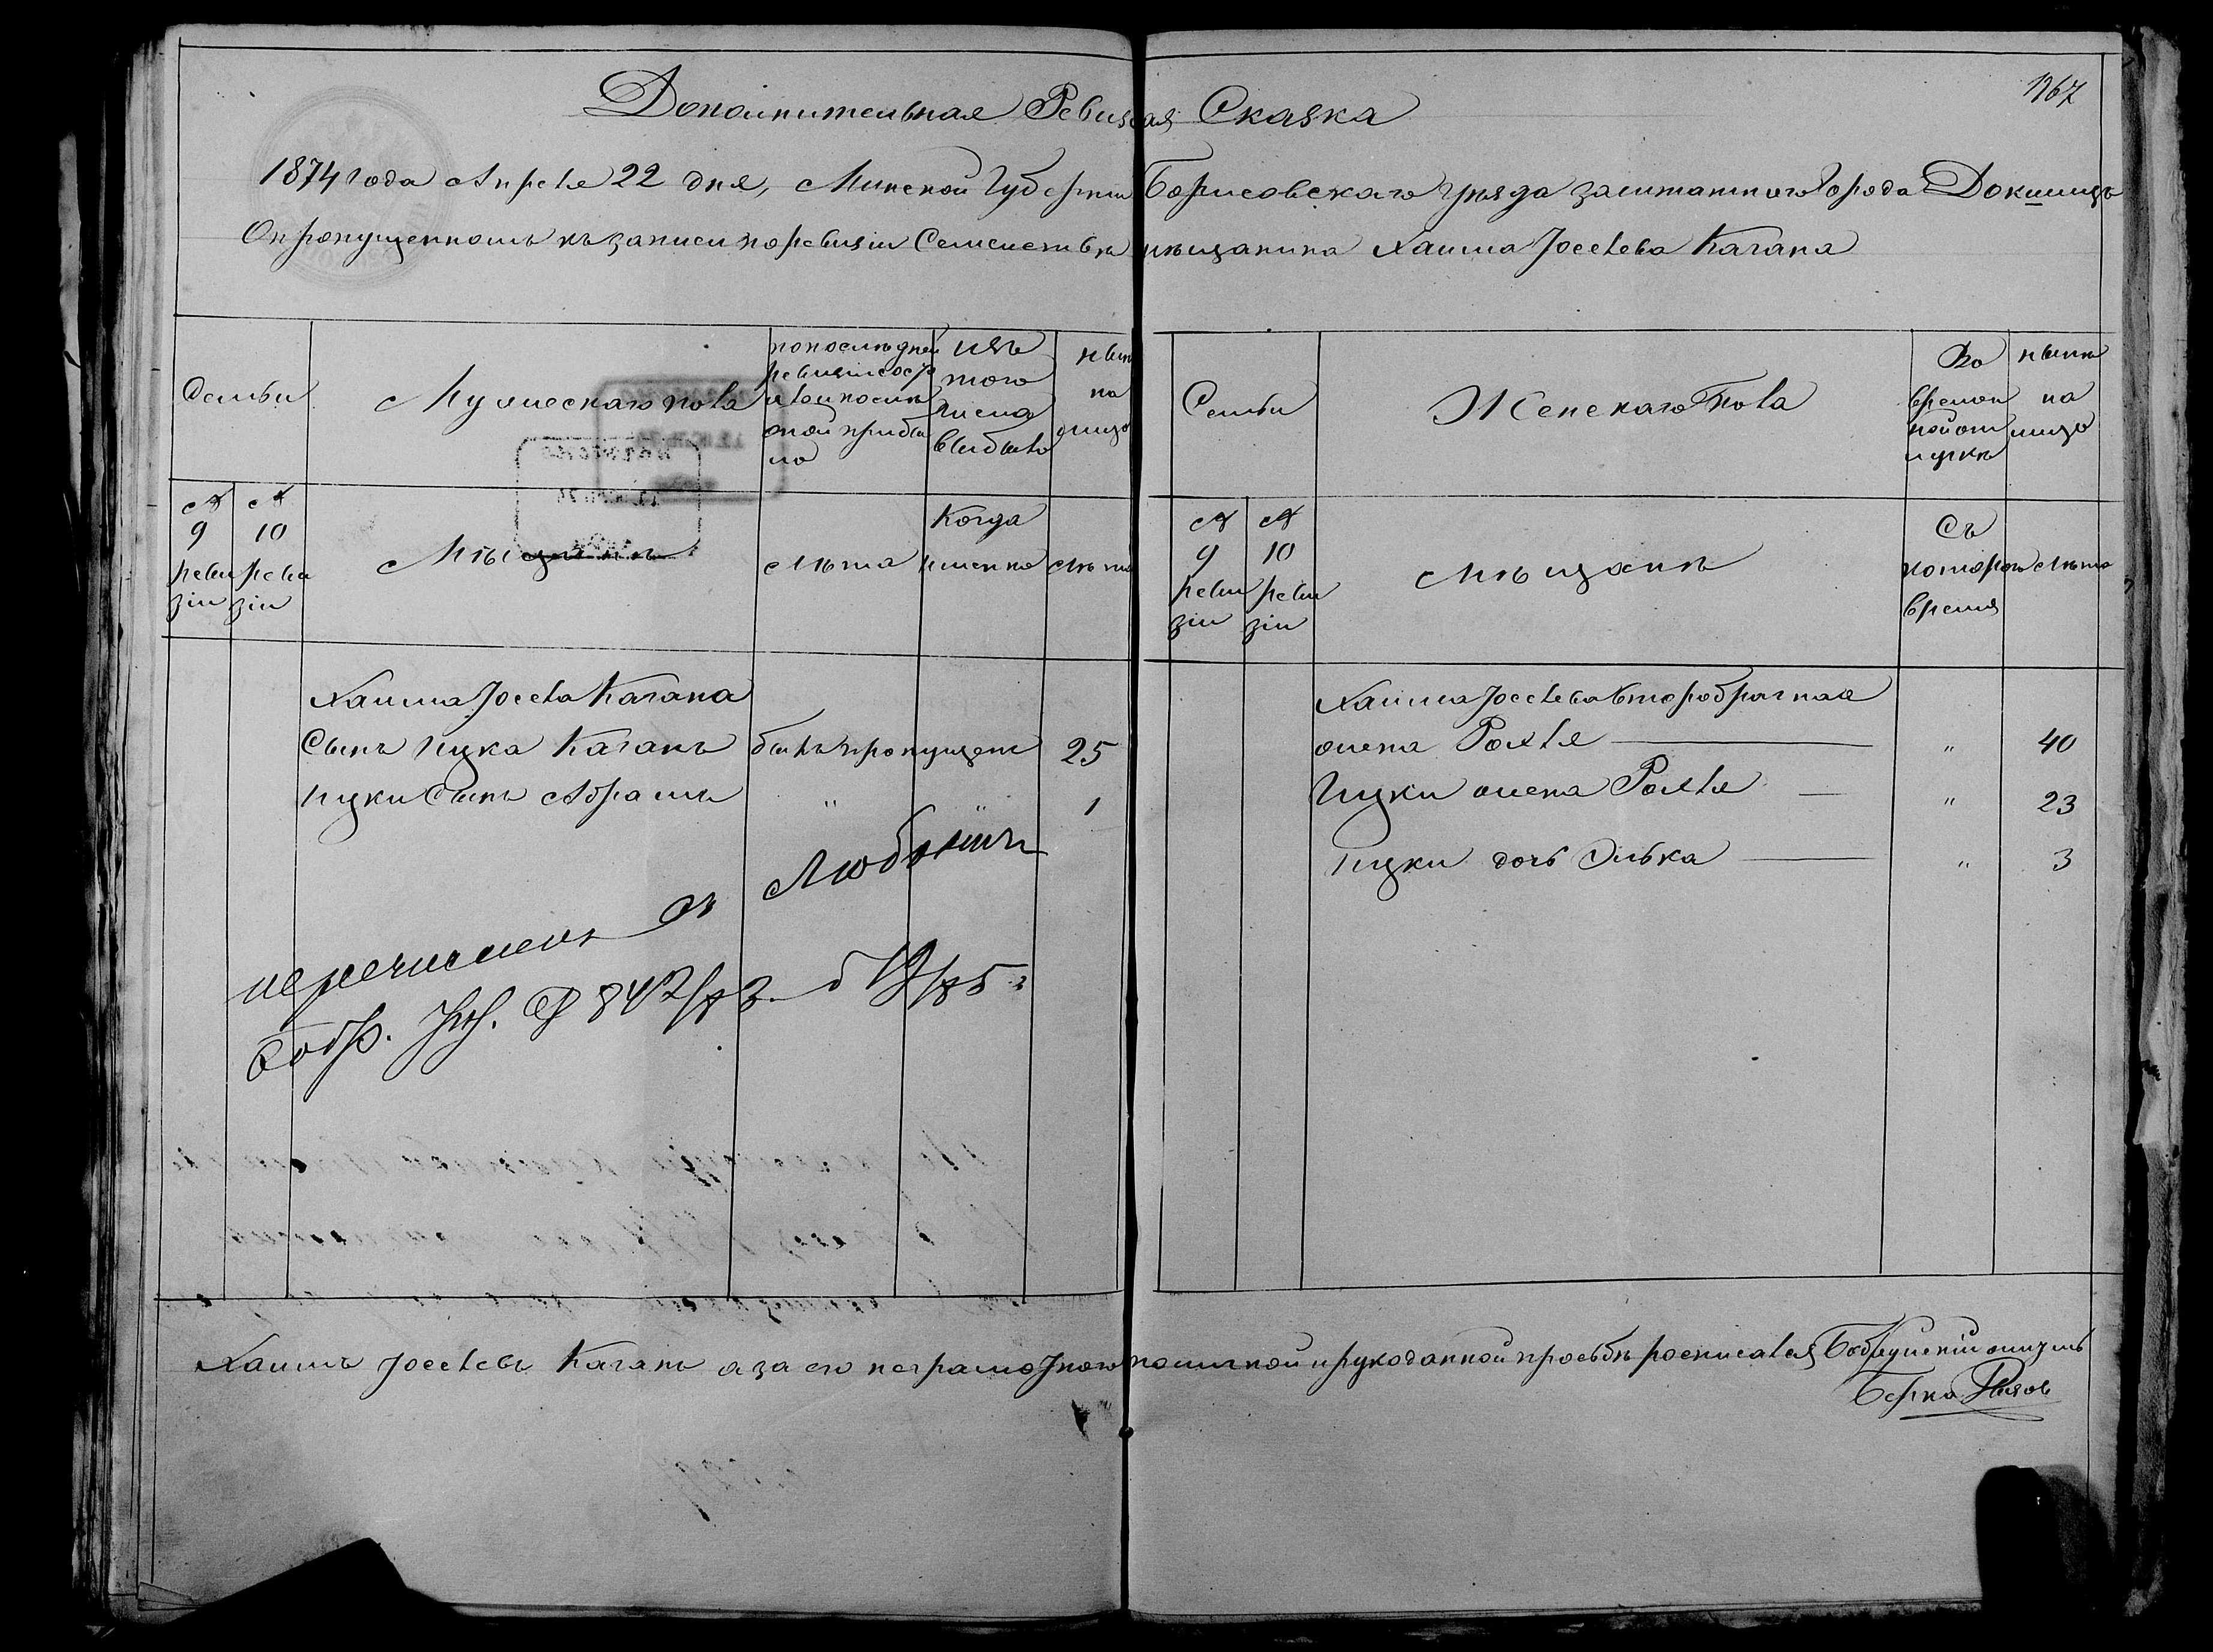 1167
Дополнительная Ревизская Сказка
1874 года Апреля 22 дня, Минской Губернии Борисовского уезда заштатного города Докшицъ
О пропущенномъ къ записи по ревизіи Семействѣ мѣщанина Хаима Іоселева Кагана
Семьи
Мужескаго пола
по послѣдней
ревизіи состо
яло и послѣ
оной прибы
ло
изъ
того
числа
выбыло
нынѣ
на
лицо
№
9
реви
зіи
№
10
реви
зіи
Мѣщанъ
Лѣта
Когда
именно
Лѣта
Хаима Іосела Кагана
Сынъ Ицка Каганъ былъ пропущенъ 25
Ицки Сынъ Абрамъ " " 1
перечисленъ въ Любонич
Бобр. уѣз. 842/83 д 19/85
Семьи
Женскаго Пола
Во
времен
ной от
лучкѣ
нынѣ
на
лицо
№
9
реви
зіи
№
10
реви
зіи
Мѣщанъ
Съ
котораго
время
Лѣта
Хаима Іоселева второбрачная
жена Рохля " 40
Ицки жена Рохля " 23
Ицки дочь Элька " 3
Хаимъ Іоселевъ Каганъ а за его неграмотного по личной и рукоданной просьбѣ росписался
Берка